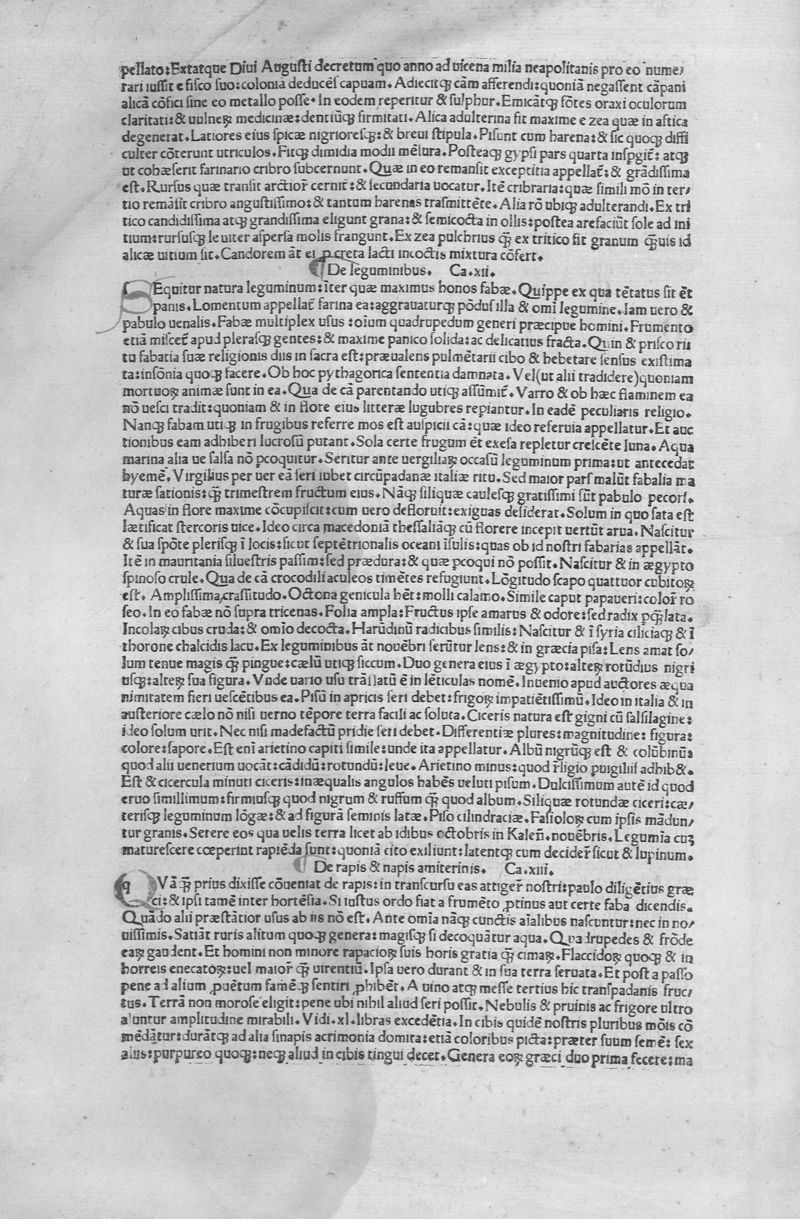 pellato:Extatque Diui Augusti decretum quo anno ad uicena milia neapolitanis pro eo nume/
rari iussit e fisco suo:colonia deducẽs capuam.Adiecitqꝫ cãm afferendi:quoniã negassent cãpani
alicã cõfici sine eo metallo posse.In eodem reperitur & sulphur.Emicãtqꝫ fõtes oraxi oculorum
claritati:& uulneꝝ medicinæ:dentiũqꝫ firmitati.Alica adulterina fit maxime e zea quæ in aftica
degenerat.Latiores eius spicæ nigrioresqꝫ:& breui stipula.Pisunt cum harena:& sic quoqꝫ diffi
culter cõterunt utriculos.Fitqꝫ dimidia modii mẽsura.Posteaqꝫ gypsi pars quarta inspgit̃:atqꝫ
ut cohæserit farinario cribro subcernunt.Quæ in eo remansit exceptitia appellat̃:& grãdissima
est.Rursus quæ transit arctior̃ cernit̃:& secundaria uocatur.Itẽ cribraria:quæ simili mõ in ter/
tio remãsit cribro angustissimo:& tantum harenas trãsmittẽte.Alia rõ ubiqꝫ adulterandi.Ex tri
tico candidissima atqꝫ grandissima eligunt grana:& semicocta in ollis:postea arefaciũt sole ad ini
tium:rursusqꝫ leuiter aspersa molis frangunt.Ex zea pulchrius qꝫ̃ ex tritico fit granum qꝫ̃uis id
alicæ uitium sit.Candorem ãt ei ꝓ creta lacti incoctis mixtura cõfert.
¶ De leguminibus. Ca.xii.
SEquitur natura leguminum:iter quæ maximus honos fabæ.Quippe ex qua tẽtatus sit ẽt
panis.Lomentum appellat̃ farina ea:aggrauaturqꝫ põdus illa & omĩ legumine.Iam uero &
pabulo uenalis.Fabæ multiplex usus:oium quadrupedum generi præcipue homini.Frumento
etiã miscet̃ apud plerasqꝫ gentes:& maxime panico solida:ac delicatius fracta.Quin & prisco ri
tu fabatia suæ religionis diis in sacra est:præualens pulmẽtarii cibo & hebetare sensus existima
ta:insõnia quoqꝫ facere.Ob hoc pythagorica sententia damnata.Vel(ut alii tradidere)quoniam
mortuoꝝ animæ sunt in ea.Qua de cã parentando utiqꝫ assũmit̃.Varro & ob hæc flaminem ea
nõ uesci tradit:quoniam & in flore eius litteræ lugubres repiantur.In eadẽ peculiaris religio.
Nanqꝫ fabam utiqꝫ in frugibus referre mos est auspicii cã:quæ ideo referuia appellatur.Et auc
tionibus eam adhiberi lucrosũ putant.Sola certe frugum ẽt exesa repletur crescẽte luna.Aqua
marina alia ue salsa nõ pcoquitur.Seritur ante uergiliaꝝ occasũ leguminum prima:ut antecedat
hyemẽ.Virgilius per uer eã seri iubet circũpadanæ italiæ ritu.Sed maior pars malũt fabalia ma
turæ sationis:qꝫ̃ trimestrem fructum eius.Nãqꝫ siliquæ caulesqꝫ gratissimi sũt pabulo pecori.
Aquas in flore maxime cõcupiscit:cum uero defloruit:exiguas desiderat.Solum in quo sata est
lætificat stercoris uice.Ideo circa macedoniã thessaliãqꝫ cũ florere incepit uertũt arua.Nascitur
& sua spõte plerisqꝫ ĩ locis:sicut septẽtrionalis oceani ĩsulis:quas ob id nostri fabarias appellãt.
Itẽ in mauritania siluestris passim:sed prædura:& quæ pcoqui nõ possit.Nascitur & in ægypto
spinoso crule.Qua de cã crocodili aculeos timẽtes refugiunt.Lõgitudo scapo quattuor cubitoꝝ
est. Amplissima,crassitudo.Octona genicula hẽt:molli calamo.Simile caput papaueri:color̃ ro
seo.In eo fabæ nõ supra tricenas.Folia ampla:Fructus ipse amarus & odore:sed radix pqꝫ̃lata.
Incolaꝝ cibus cruda:& omĩo decocta.Harũdinũ radicibus similis:Nascitur & ĩ syria ciliciaqꝫ & ĩ
thorone chalcidis lacu.Ex leguminibus ãt nouẽbri serũtur lens:& in græcia pisa:Lens amat so/
lum tenue magis qꝫ̃ pingue:cælũ utiqꝫ siccum.Duo genera eius ĩ ægypto:alteꝝ rotũdius nigri
usqꝫ:alteꝝ sua figura.Vnde uario usu trãslatũ ẽ in lẽticulas nomẽ.Inuenio apud auctores æqua
nimitatem fieri uescẽtibus ea.Pisũ in apricis seri debet:frigoꝝ impatiẽtissimũ.Ideo in italia & in
austeriore cælo nõ nisi uerno tẽpore terra facili ac soluta.Ciceris natura est gigni cũ salsilagine:
ideo solum urit.Nec nisi madefactũ pridie seri debet.Differentiæ plures:magnitudine:figura:
colore:sapore.Est enĩ arietino capiti simile:unde ita appellatur.Albũ nigrũqꝫ est & colũbinũ:
quod alii uenerium uocãt:cãdidũ:rotundũ:leue.Arietino minus:quod r̃ligio puigiliis adhib&.
Est & cicercula minuti ciceris:inæqualis angulos habẽs ueluti pisum.Dulcissimum autẽ id quod
eruo simillimum:firmiusqꝫ quod nigrum & ruffum qꝫ̃ quod album.Siliquæ rotundæ ciceri:cæ/
terisqꝫ leguminum lõgæ:& ad figurã seminis latæ.Piso cilindraciæ.Fasioloꝝ cum ipsis mãdun/
tur granis.Serere eos qua uelis terra licet ab idibus octobris in Kaleñ.nouẽbris.Legumĩa cuꝫ
maturescere cœperint rapiẽda sunt:quoniã cito exiliunt:latentqꝫ cum decider̃ sicut & lupinum.
¶ De rapis & napis amiterinis. Ca.xiii.
QVãqꝫ̃ prius dixisse cõueniat de rapis:in transcursu eas attiger̃ nostri:paulo diligẽtius græ
ci:& ipsi tamẽ inter hortẽsia.Si iustus ordo fiat a frumẽto ꝓtinus aut certe faba dicendis.
Quãdo alii præstãtior usus ab iis nõ est.Ante omĩa nãqꝫ cunctis aĩalibus nascuntur:nec in no/
uissimis.Satiãt ruris alitum quoqꝫ genera:magisqꝫ si decoquãtur aqua.Quadrupedes & frõde
eaꝝ gaudent.Et homini non minore rapacioꝝ suis horis gratia qꝫ̃ cimaꝝ.Flaccidoꝝ quoqꝫ & in
horreis enecatoꝝ:uel maior̃ qꝫ̃ uirentiũ.Ipsa uero durant & in sua terra seruata.Et post a passo
pene ad alium ꝓuẽtum famẽqꝫ sentiri ꝓhibẽt.A uino atqꝫ messe tertius hic transpadanis fruc/
tus.Terrã non morose eligit:pene ubi nihil aliud seri possit.Nebulis & pruinis ac frigore ultro
aluntur amplitudine mirabili.Vidi.xl.libras excedẽtia.In cibis quidẽ nostris pluribus mõis cõ
mẽdãtur:durãtqꝫ ad alia sinapis acrimonia domita:etiã coloribus picta:præter suum semẽ:sex
aliis:purpureo quoqꝫ:neqꝫ aliud in cibis tingui decet.Genera eoꝝ græci duo prima fecere:ma